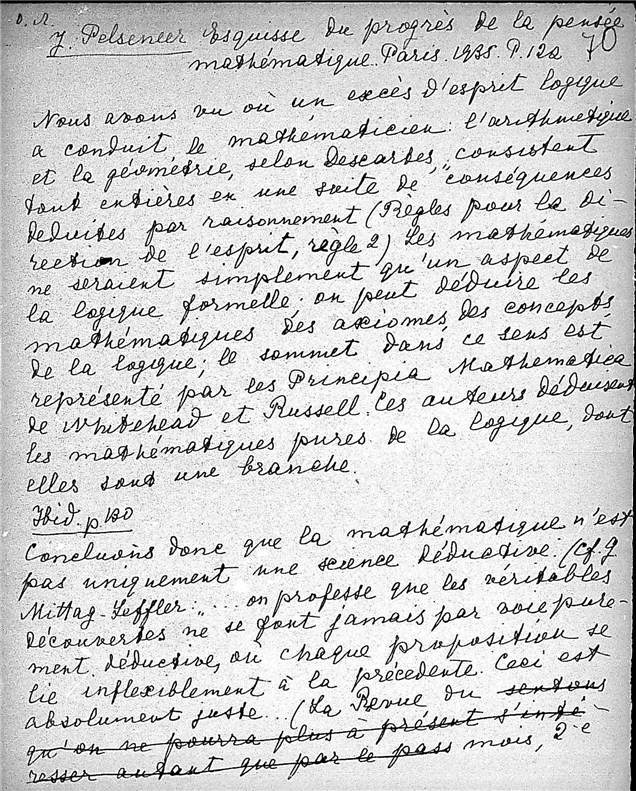 D. Л.
J. Pelseneer Esquisse du progrès de la pensée
mathématique. Paris. 1935. P. 122 70
Nous avons vu où un excès d'esprit logique
a conduit le mathématicien: l'arithmétique
et la géométrie, selon Descartes, „consistent
tout entières en une suite de "conséquences
deduites par raisonnement (Règles pour la di-
rection de l'esprit, règle 2) Les mathématiques
ne seraient simplement qu'un aspect de
la logique formelle: on peut déduire les
mathématiques des axiomes, des concepts
de la logique; le sommet dans ce sens est
représenté par les Principia Mathematica
de Whitehead et Russell. Ces auteurs déduisent
les mathématiques pures de la logique, dont
elles sont une branche.
Ibid. p. 120
Concluons donc que la mathématique n'est
pas uniquement une science déductive. (cf. g
Mittag-Leffler: „... on professe que les véritables
découvertes ne se font jamais par voie pure-
ment déductive, où chaque proposition se
lie inflexiblement à la précédente. Ceci est
absolument juste... (La Revue du sentons
qu'on ne pourra plus à présent s'inté-
resser autant que par le pass mois, 2-e